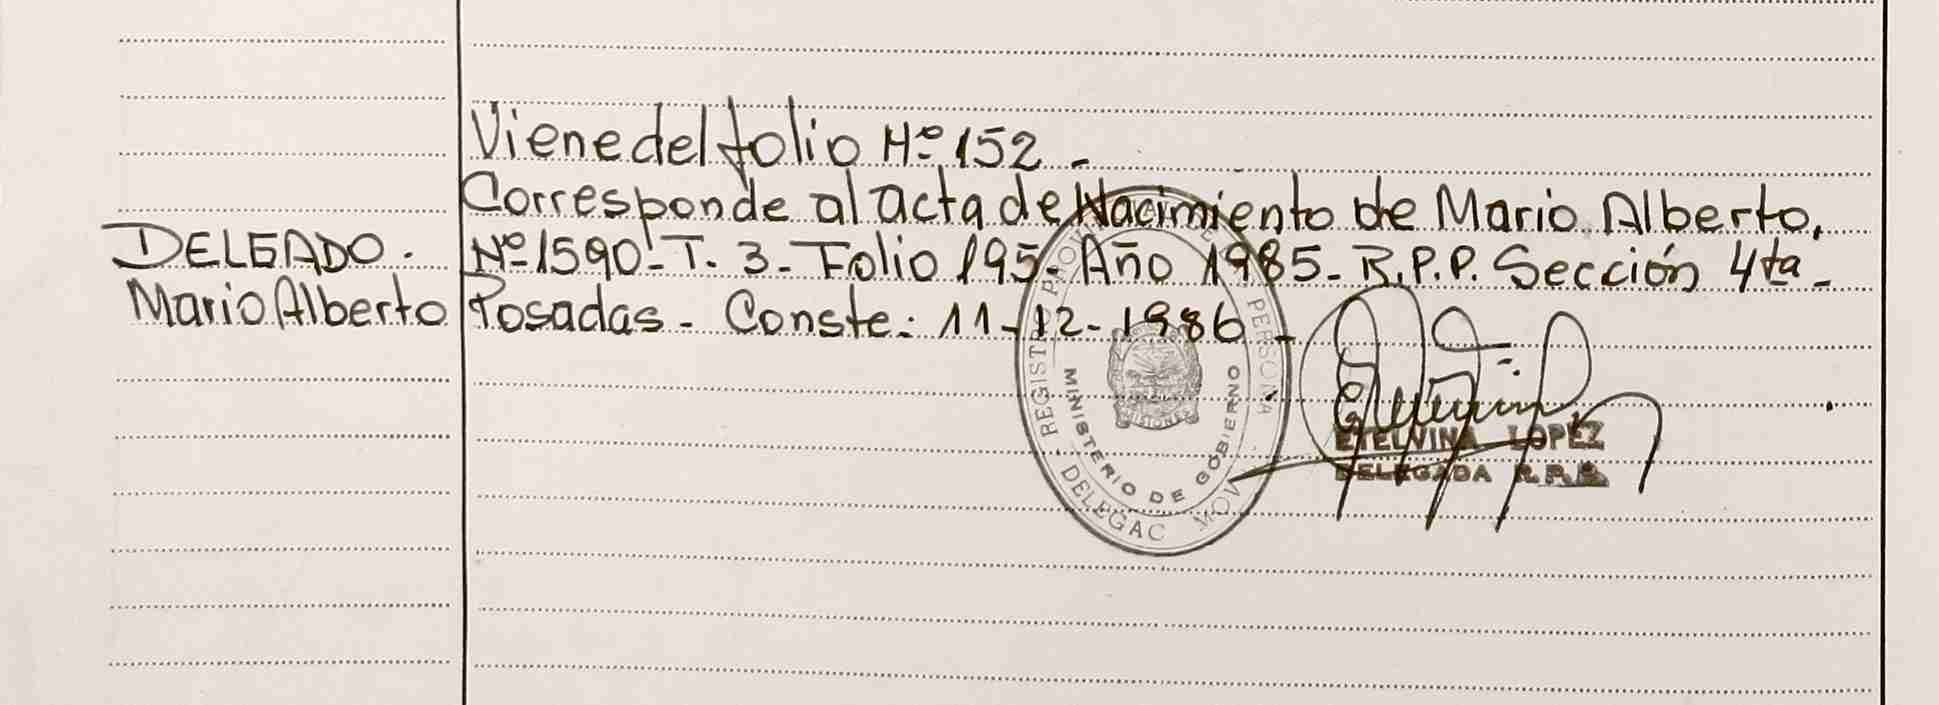 Viene del folio Nº 152 -
Corresponde al acta de Nacimiento de Mario Alberto.
DELGADO. Nº 1590 - T. 3 - Folio 195 - Año 1985 - R.P.P. Sección 4ta -
Mario Alberto Posadas - Conste: 11-12-1986 -
MINISTERIO DE GOBIERNO
REGISTR
DE PERSONA
DELEGAC
ETELVINA LOPEZ
DELEGADA R.P.P.